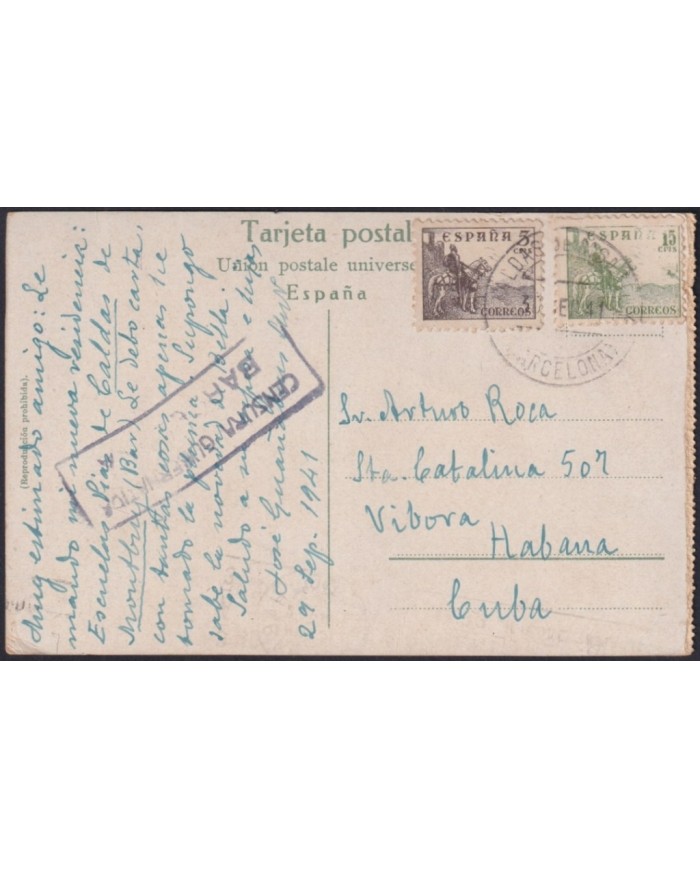 Tarjeta postal
Unión postale universe
España
ESPAÑA 5 CTS
CORREOS
ESPAÑA 15 CTS
CORREOS
BARCELONA
(Reproducción prohibida).
CENSURA GUBERNATIVA
BAR
Muy estimado amigo: Le
mando mi nueva residencia:
Escuelas Pías de Caldas de
Montbuy (Bar) Le debo carta,
con tantas cosas apenas he
tomado la pluma. Supongo
sabe la novedad de
Saludo a su esposa e hijos
José
29 Sep. 1941
Sr. Arturo Roca
Sta. Catalina 507
Vibora
Habana
Cuba